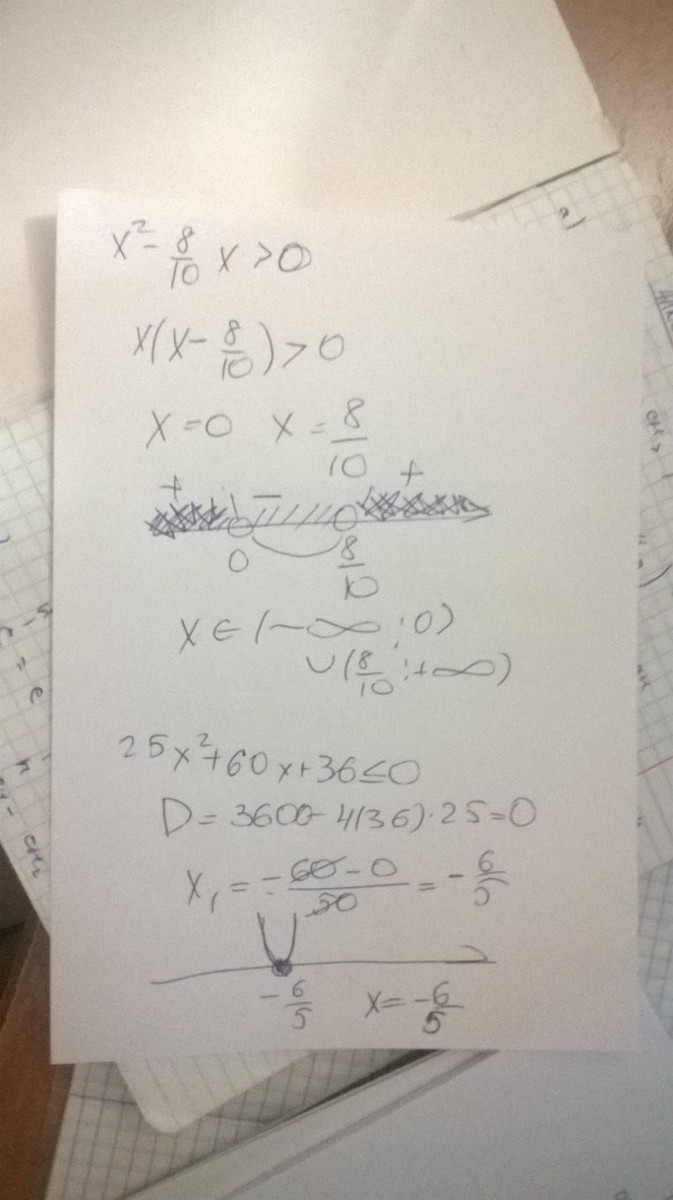 x² - 8/10 x > 0
x(x - 8/10) > 0
x = 0 x = 8/10
+ - +
0 8/10
x ∈ (-∞; 0)
∪ (8/10; +∞)
25x² + 60x + 36 ≤ 0
D = 3600 - 4(36)·25 = 0
x₁ = -60 - 0 / 50 = -6/5
-6/5 x = -6/5